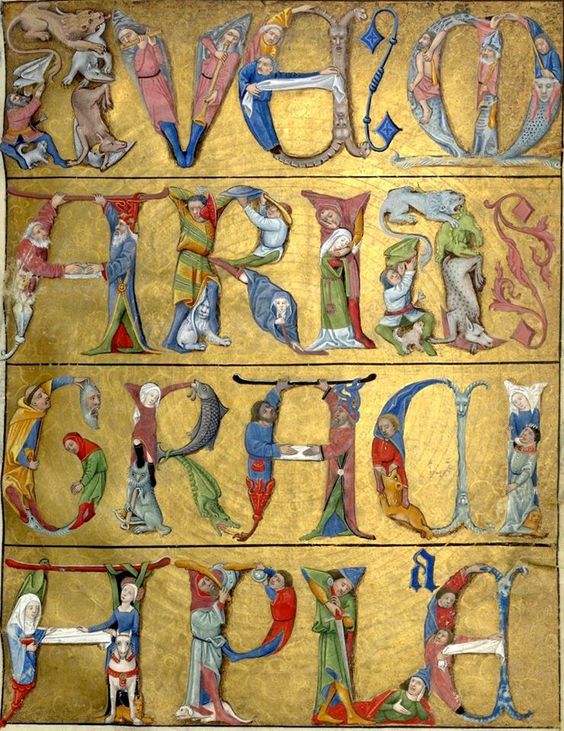 AVE M
ARIA
GRACI
A PLE
a